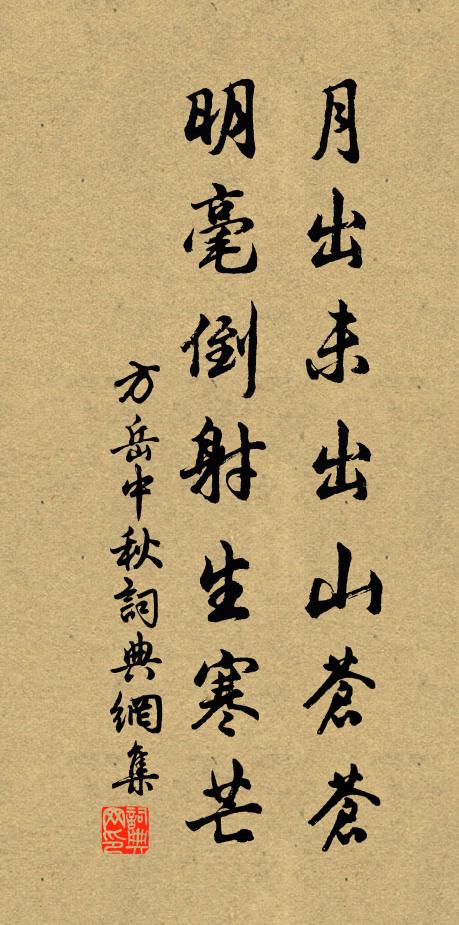 月出未出山蒼蒼
明毫倒射生寒芒
方岳中秋詞典網集
詞典
网印